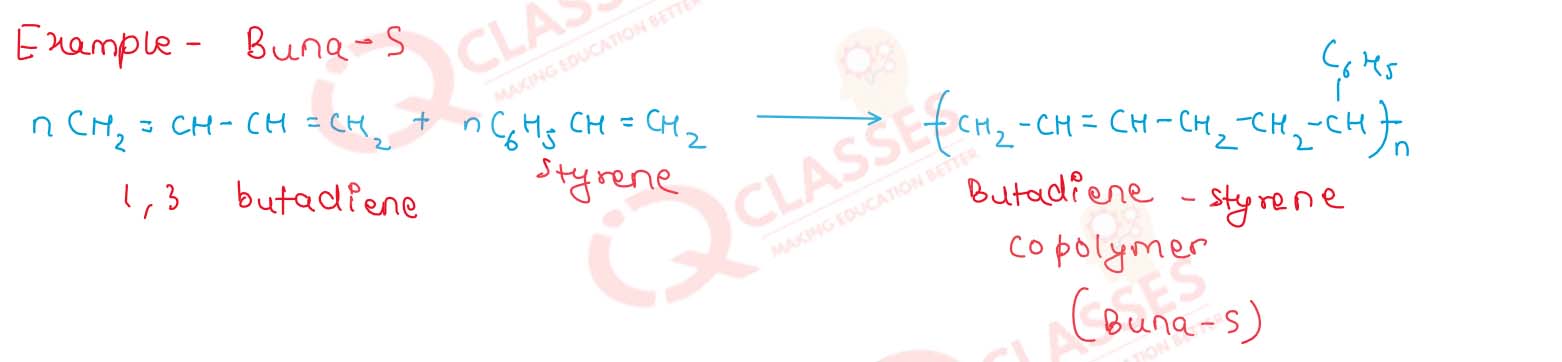 Example - Buna-S
C₆H₅
n CH₂ = CH - CH = CH₂ + n C₆H₅ CH = CH₂ ⟶ (CH₂ - CH = CH - CH₂ - CH₂ - CH)n
1,3 butadiene
Styrene
Butadiene - styrene
copolymer
(Buna-S)
IQ CLASSES
MAKING EDUCATION BETTER
IQ CLASSES
MAKING EDUCATION BETTER
CLASSES